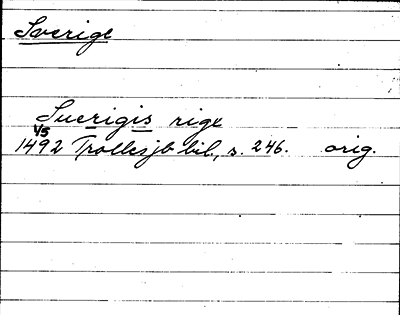 Sverige
Suerigis rige
1/5
1492 Trollesjb bil., s. 246. orig.